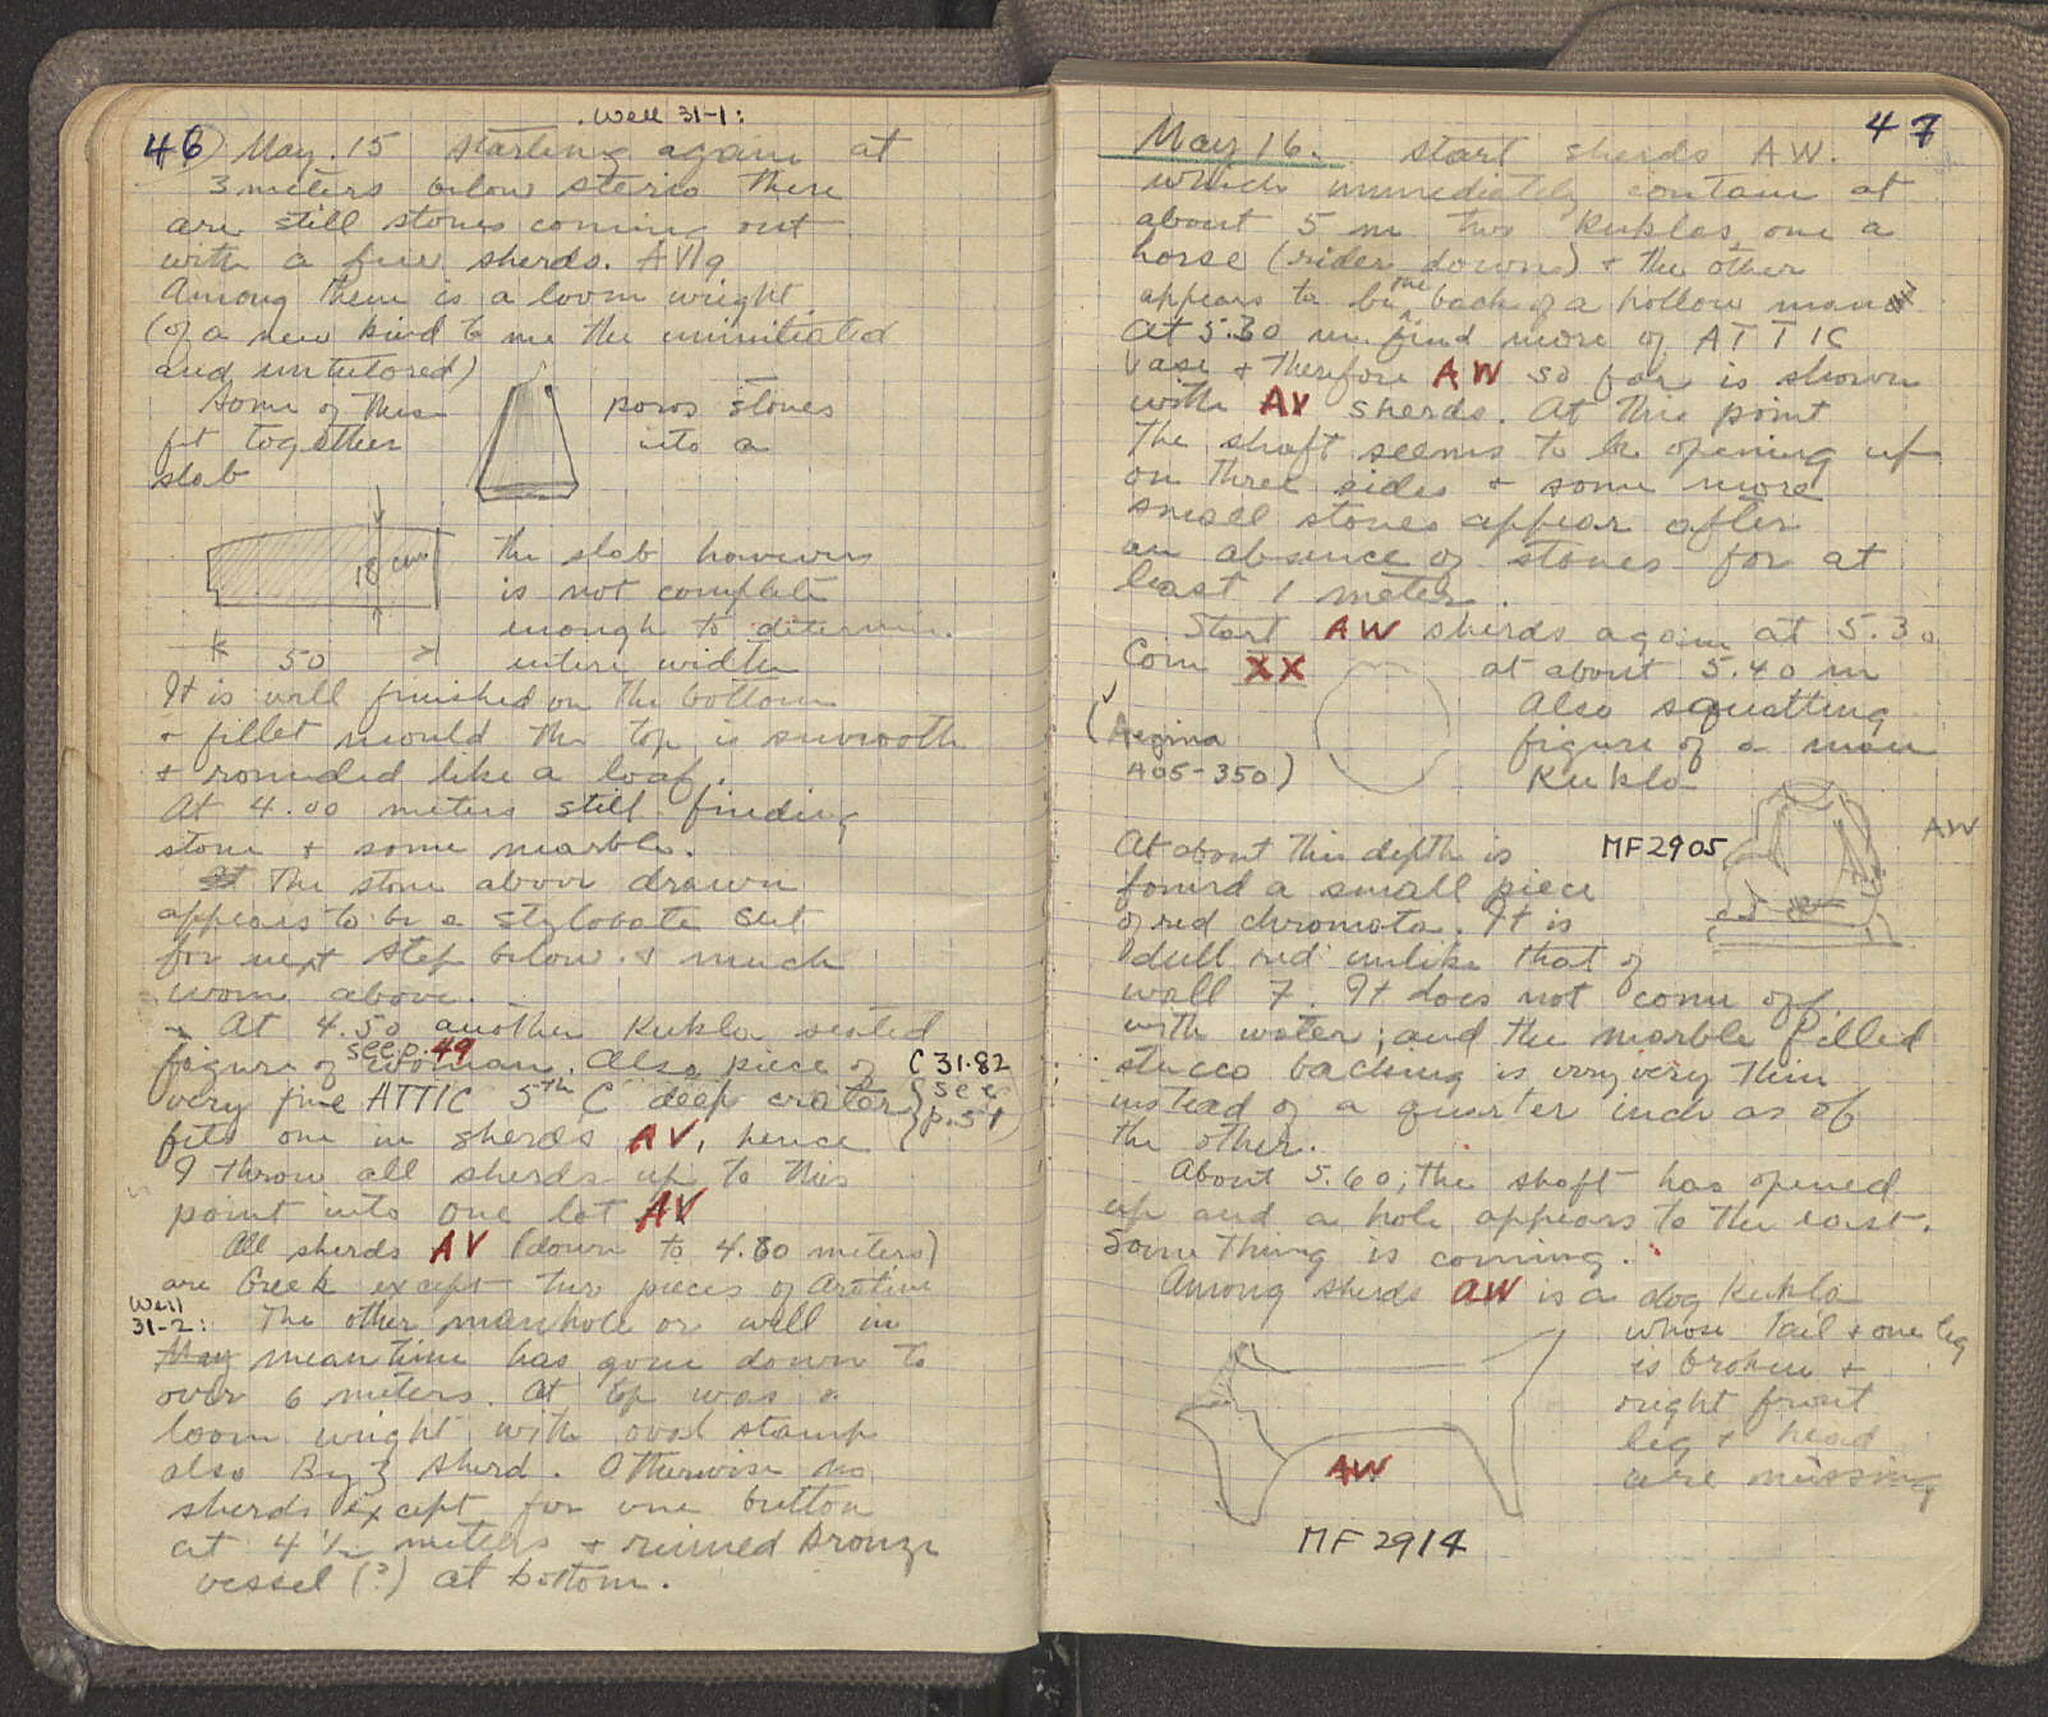 Well 31-1:
46) May. 15 starting again at
3 meters below stereo there
are still stones coming out
with a few sherds.
Among them is a loom weight
(of a new kind to me the uninitiated
and untutored)
Some of these poros stones
fit together into a
slab
18 cm
50
The slab however
is not complete
enough to determine
entire width
It is well finished on the bottom
+ fillet mould the top is smooth
+ rounded like a loaf.
At 4.00 meters still finding
stone + some marble.
The stone above drawn
appears to be a stylobate cut
for next step below & much
worn above.
At 4.50 another Kukla seated
see p. 49
figure of woman. Also piece of
very fine ATTIC 5th C deep crater
C 31.82
see
p. 51
fits one in sherds AV, hence
I throw all sherds up to this
point into one lot AV
All sherds AV (down to 4.80 meters)
are Greek except two pieces of Aretine
Well
31-2: The other manhole or well in
May meantime has gone down to
over 6 meters. At top was a
loom weight with oval stamp
also Byz sherd. Otherwise no
sherds except for one button
at 4 1/2 meters + ruined bronze
vessel (?) at bottom.
47
May 16. Start sherds AW.
which immediately contain at
about 5 m two Kuklas, one a
horse (rider down) + the other
appears to be the back of a hollow man
At 5.30 m. find more of ATTIC
Vase + therefore AW so far is thrown
with AV sherds. At this point
the shaft seems to be opening up
on three sides + some more
small stones appear after
an absence of stones for at
least 1 meter.
Start AW sherds again at 5.30
Coin XX at about 5.40 m
(Aegina
A05-350)
Also squatting
figure of a man
Kukla
AW
MF2905
At about this depth is
found a small piece
of red chromata. It is
dull red unlike that of
wall 7. It does not come off
with water; and the marble filled
stucco backing is very very thin
instead of a quarter inch as of
the other.
About 5.60, the shaft has opened
up and a hole appears to the east.
Something is coming.
Among sherds AW is a dog Kukla
whose tail + one leg
is broken +
right front
leg + head
are missing
AW
MF 2914